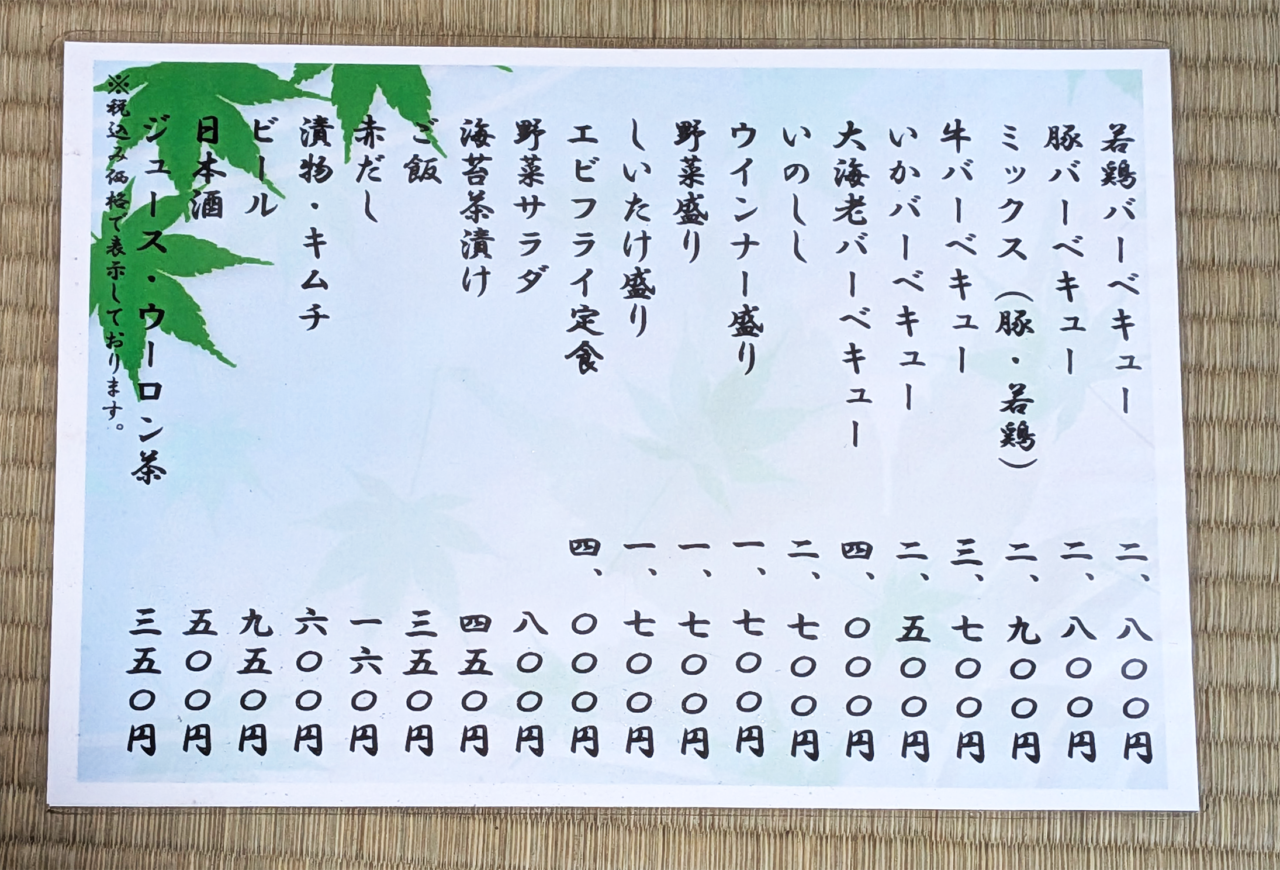 若鶏バーベキュー 二、八〇〇円
豚バーベキュー 二、八〇〇円
ミックス（豚・若鶏） 二、九〇〇円
牛バーベキュー 三、七〇〇円
いかバーベキュー 二、五〇〇円
大海老バーベキュー 四、〇〇〇円
いのしし 二、七〇〇円
ウインナー盛り 一、七〇〇円
野菜盛り 一、七〇〇円
しいたけ盛り 一、七〇〇円
エビフライ定食 四、〇〇〇円
野菜サラダ 八〇〇円
海苔茶漬け 四五〇円
ご飯 三五〇円
赤だし 一六〇円
漬物・キムチ 六〇〇円
ビール 九五〇円
日本酒 五〇〇円
ジュース・ウーロン茶 三五〇円
※税込み価格で表示しております。